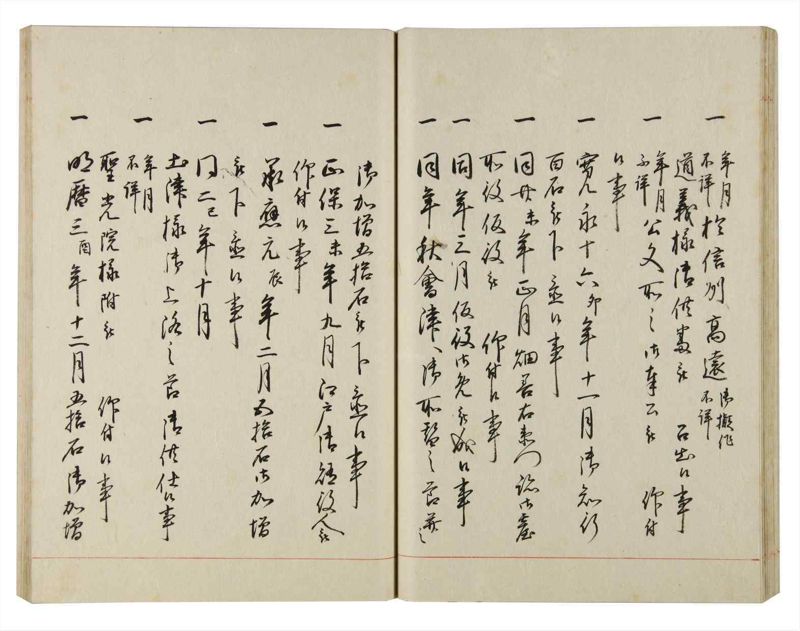 一 年月不詳 於信州高遠 御擬作不詳
道義様御供番被 召出候事
一 年月不詳 公文所之御奉公被 仰付
候事
一 寛永十六卯年十一月御知行
百石被下置候事
一 同廿未年正月畑善右衛門跡御台
所役仮役被 仰付候事
一 同年三月仮役御免被成候事
一 同年秋會津へ御所替之節
御加増五拾石被下置候事
一 正保三未年九月江戸御
仰付候事
一 承應元辰年二月五拾石御加増
被下置候事
一 同二巳年十月
土津様御上洛之節御供仕候事
一 年月不詳
聖光院様附被 仰付候事
一 明暦三酉年十二月五拾石御加増